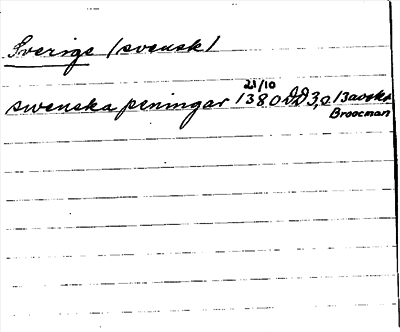 Sverige (svensk)
21/10
swenska peningar 1380 DD 3,2 13 avskr
Broocman